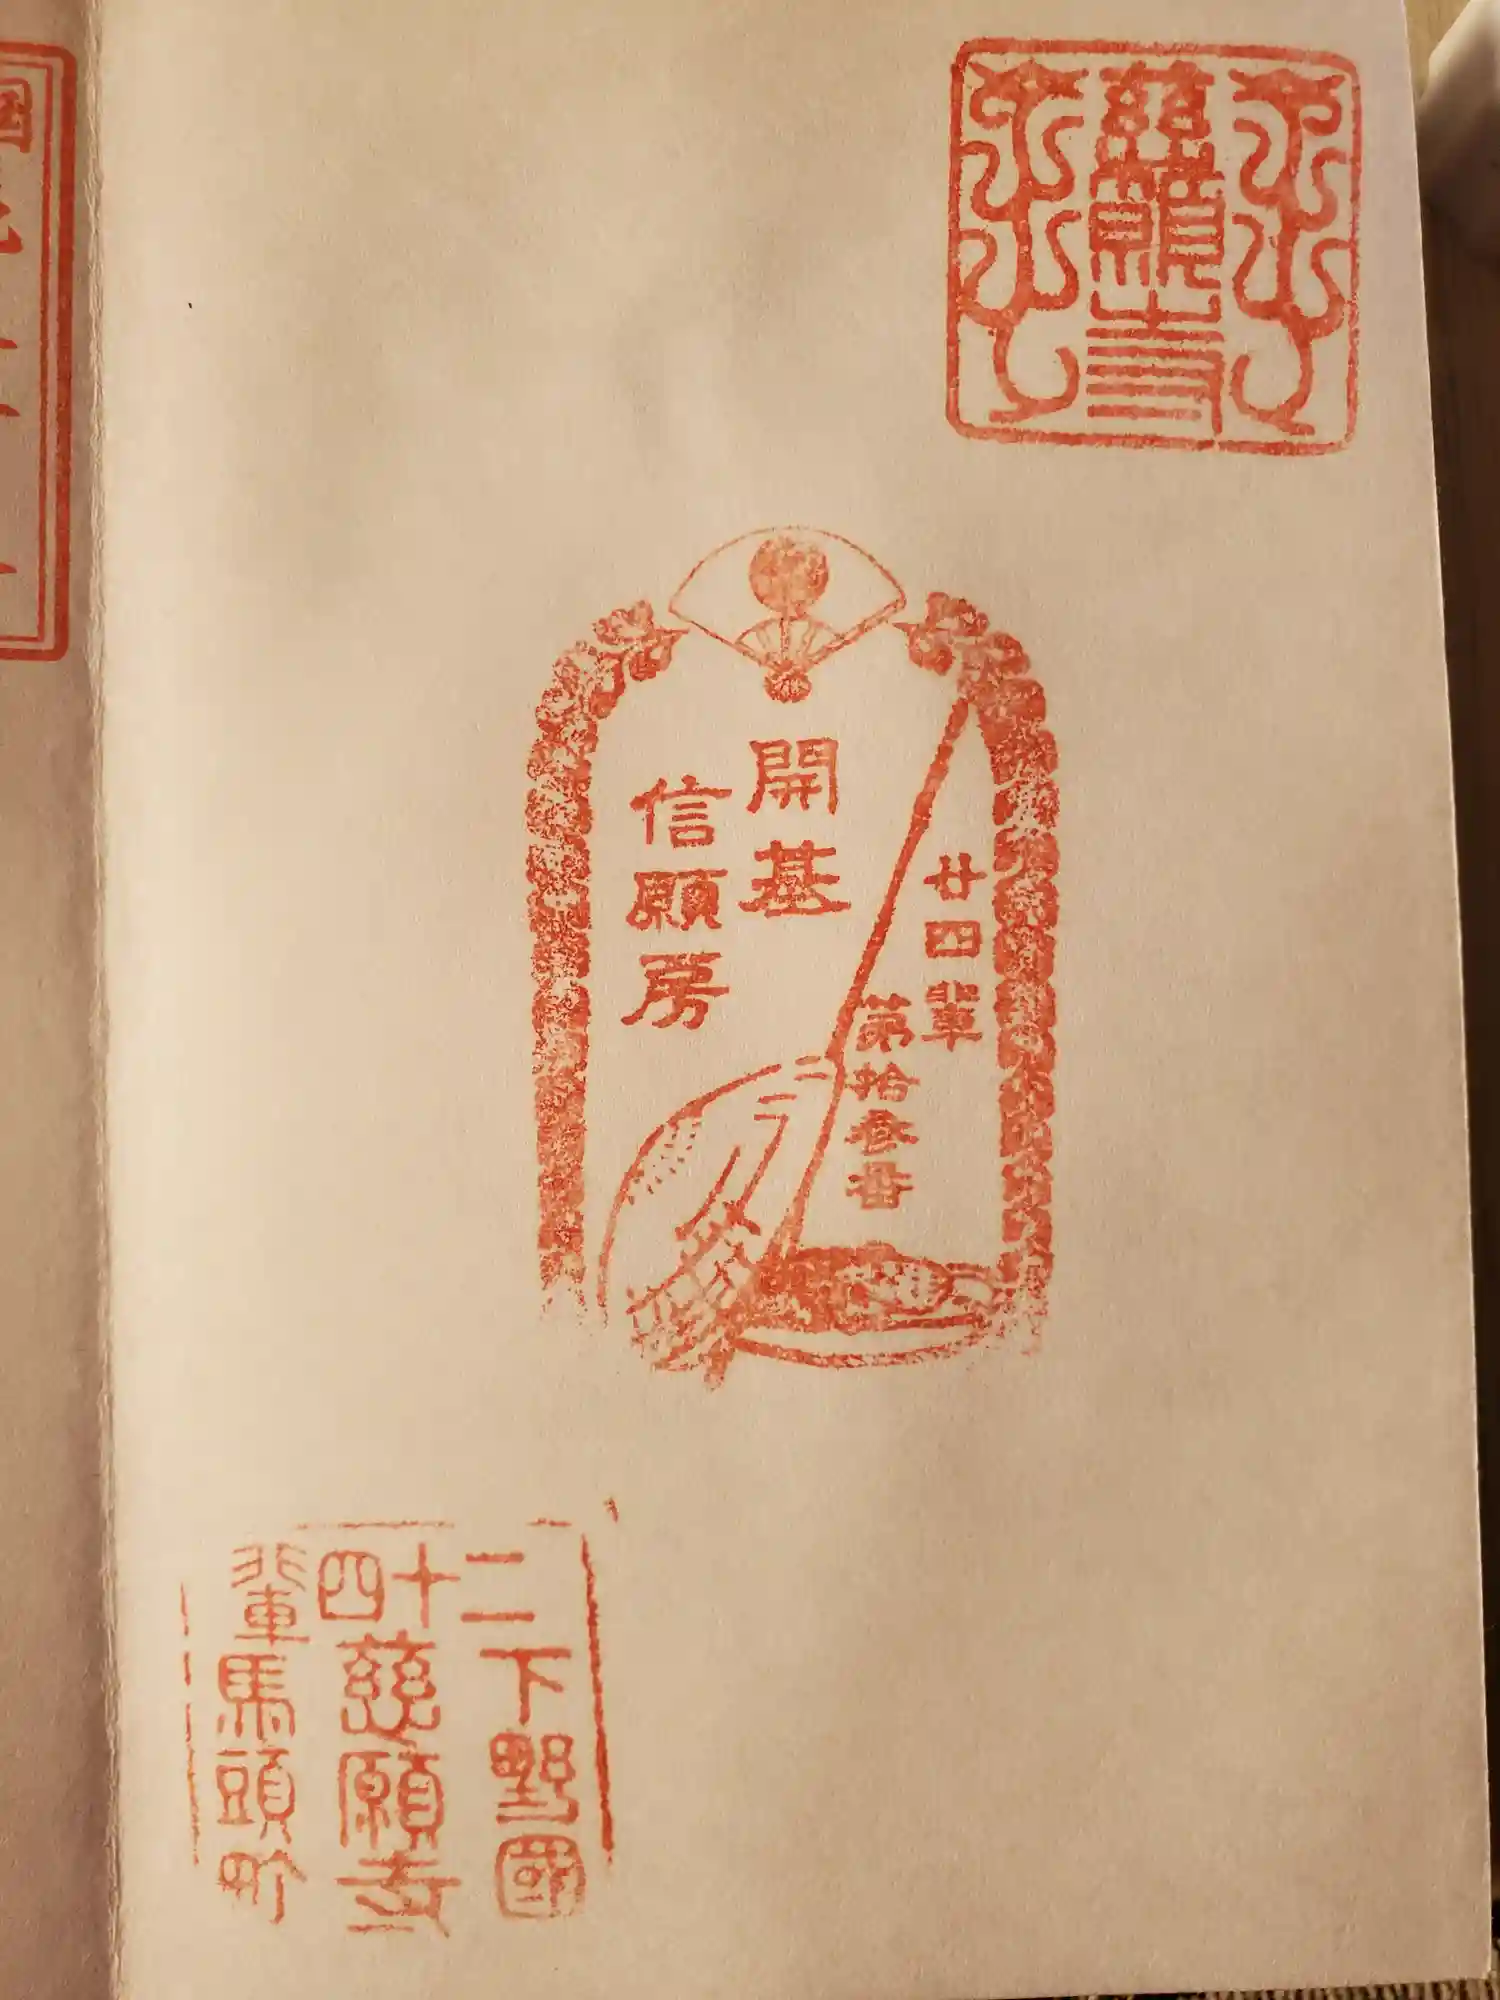 慈願寺
廿四輩
第拾參番
開基
信願房
二十四輩
下野國
慈願寺
馬頭町